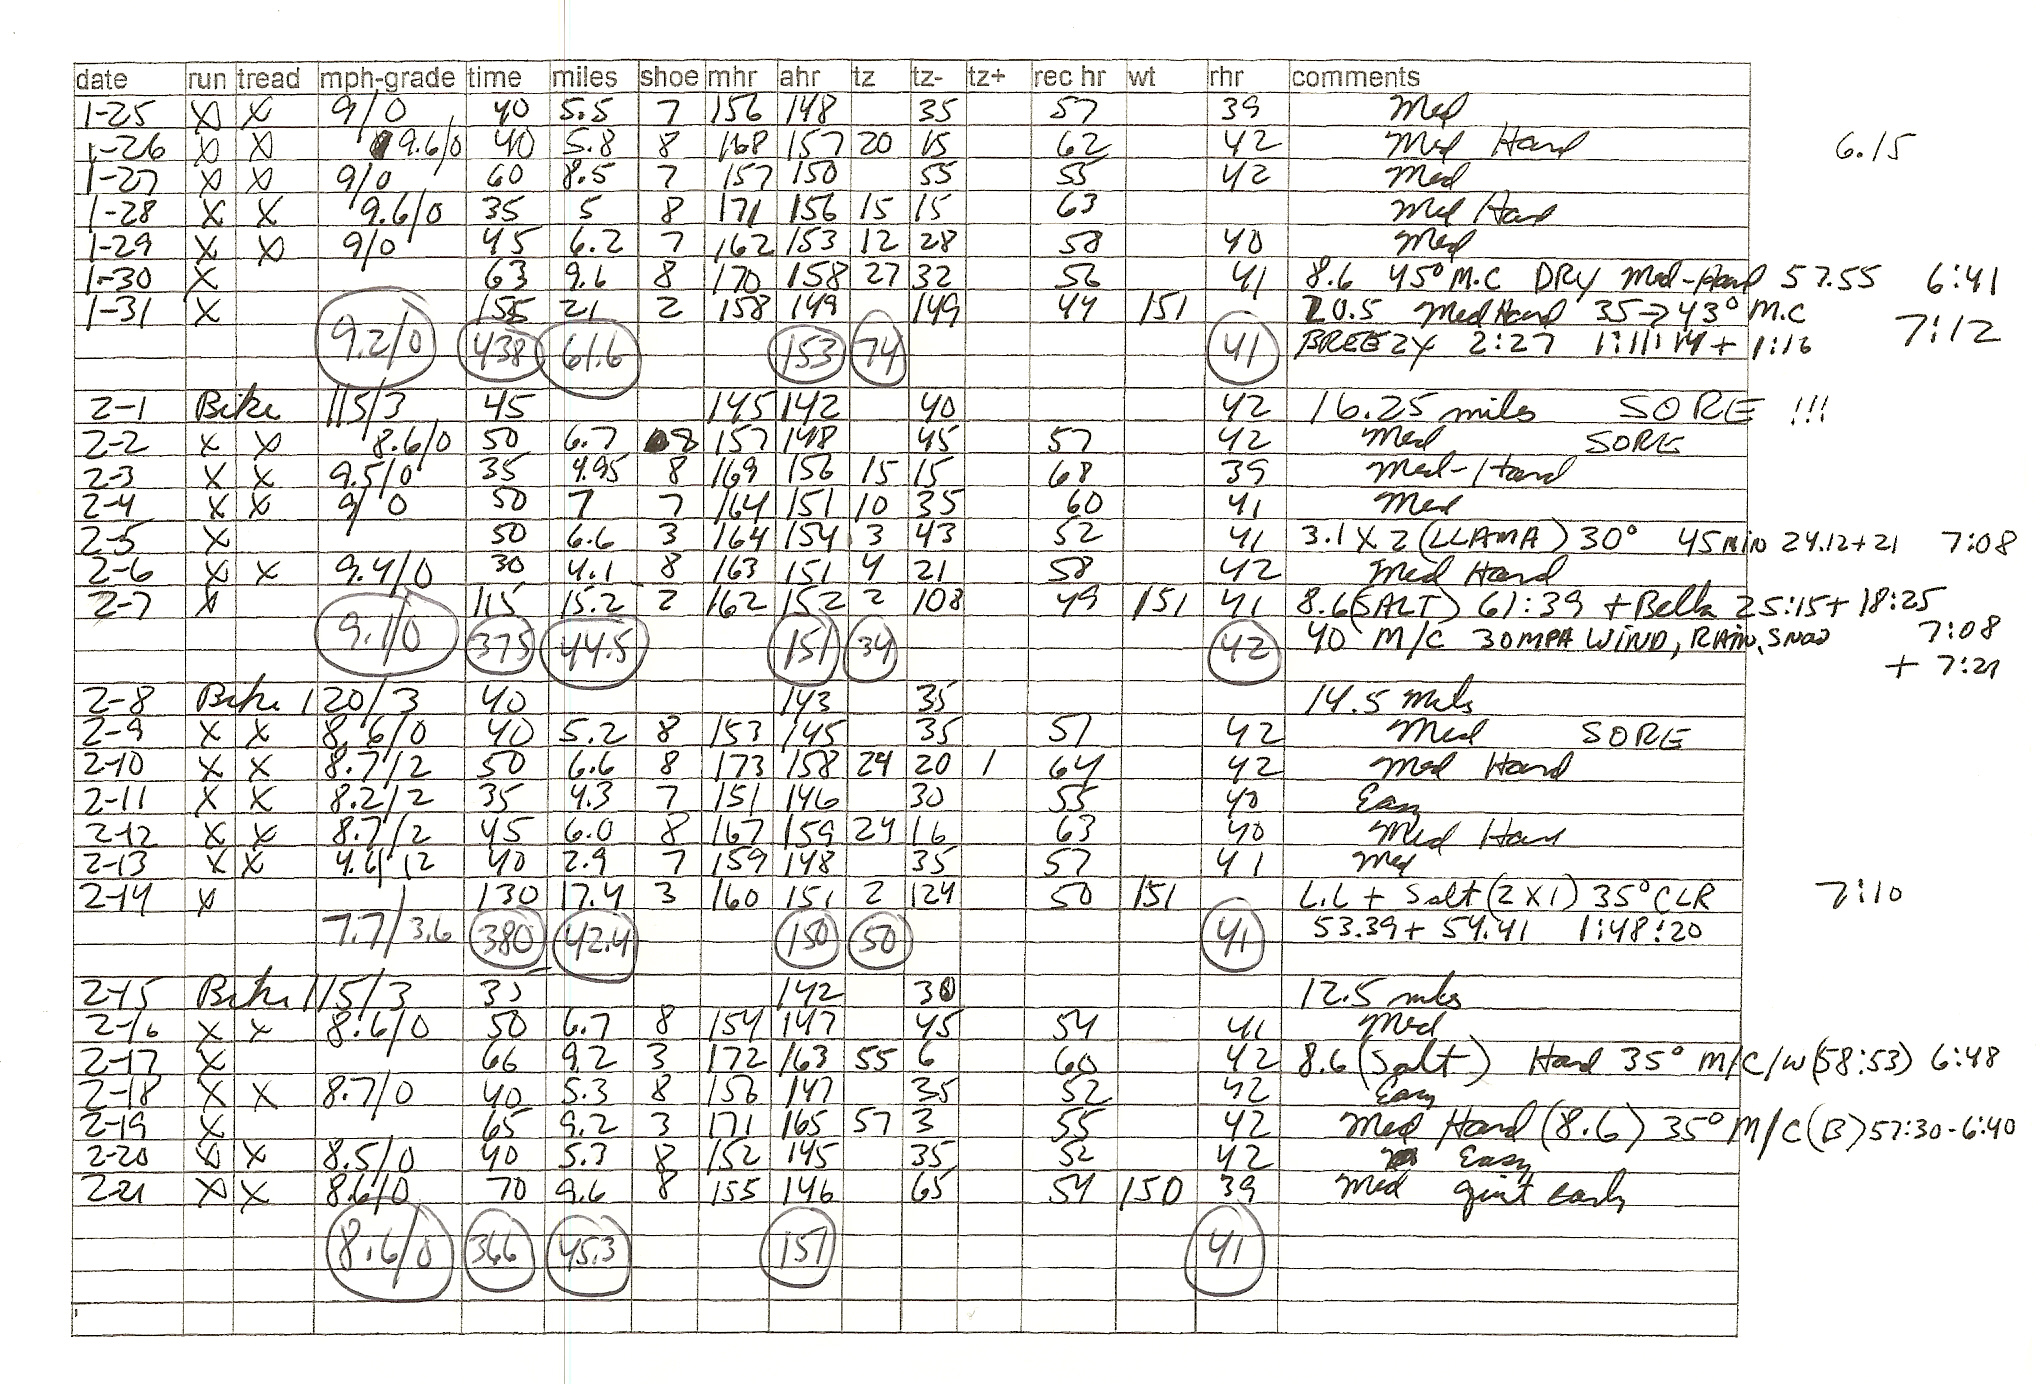 date run tread mph-grade time miles shoe mhr ahr tz tz- tz+ rec hr wt rhr comments
1-25 X X 9/0 40 5.5 7 156 148 35 57 39 Med
1-26 X X 9.6/0 40 5.8 8 168 157 20 15 62 42 Med Hard 6.15
1-27 X X 9/0 60 8.5 7 157 150 55 55 42 Med
1-28 X X 9.6/0 35 5 8 171 156 15 15 63 Med Hard
1-29 X X 9/0 45 6.2 7 162 153 12 28 58 40 Med
1-30 X 63 9.6 8 170 158 27 32 56 41 8.6 45° M.C DRY Med-Hard 57.55 6:41
1-31 X 155 21 2 158 149 149 47 151 20.5 Med Hard 35→43° M.C
9.2/0 438 61.6 153 74 41 BREEZY 2:27 1:11:14 + 1:16 7:12
2-1 Bike 115/3 45 145 142 40 42 16.25 miles SORE !!!
2-2 X X 8.6/0 50 6.7 8 157 148 45 57 42 Med SORE
2-3 X X 9.5/0 35 4.95 8 169 156 15 15 68 39 Med-Hard
2-4 X X 9/0 50 7 7 164 151 10 35 60 41 Med
2-5 X 50 6.6 3 164 154 3 43 52 41 3.1 X 2 (LLAMA) 30° 45 min 24.12+21 7:08
2-6 X X 9.4/0 30 4.1 8 163 151 4 21 58 42 Med Hard
2-7 X 115 15.2 2 162 152 2 108 49 151 41 8.6 (SALT) 61:39 + Bella 25:15+18:25
9.1/0 375 44.5 151 34 42 40 M/C 30 MPH WIND, RAIN, SNOW 7:08
+ 7:21
2-8 Bike 120/3 40 143 35 14.5 Miles
2-9 X X 8.6/0 40 5.2 8 153 145 35 57 42 Med SORE
2-10 X X 8.7/2 50 6.6 8 173 158 24 20 1 64 42 Med Hard
2-11 X X 8.2/2 35 4.3 7 151 146 30 55 40 Easy
2-12 X X 8.7/2 45 6.0 8 167 159 24 16 63 40 Med Hard
2-13 X X 4.6/12 40 2.9 7 159 148 35 57 41 Med
2-14 X 130 17.4 3 160 151 2 124 50 151 L.L + Salt (2 X 1) 35° CLR 7:10
7.7/3.6 380 42.4 150 50 41 53.39 + 54.41 1:48:20
2-15 Bike 115/3 35 142 30 12.5 miles
2-16 X X 8.6/0 50 6.7 8 154 147 45 54 41 Med
2-17 X 66 9.2 3 172 163 55 6 60 42 8.6 (Salt) Hard 35° M/C/W (58:53) 6:48
2-18 X X 8.7/0 40 5.3 8 156 147 35 52 42 Easy
2-19 X 65 9.2 3 171 165 57 3 55 42 Med Hard (8.6) 35° M/C (B) 57:30-6:40
2-20 X X 8.5/0 40 5.3 8 152 145 35 52 42 Easy
2-21 X X 8.6/0 70 9.6 8 155 146 65 54 150 39 Med early
8.6/0 366 45.3 151 41